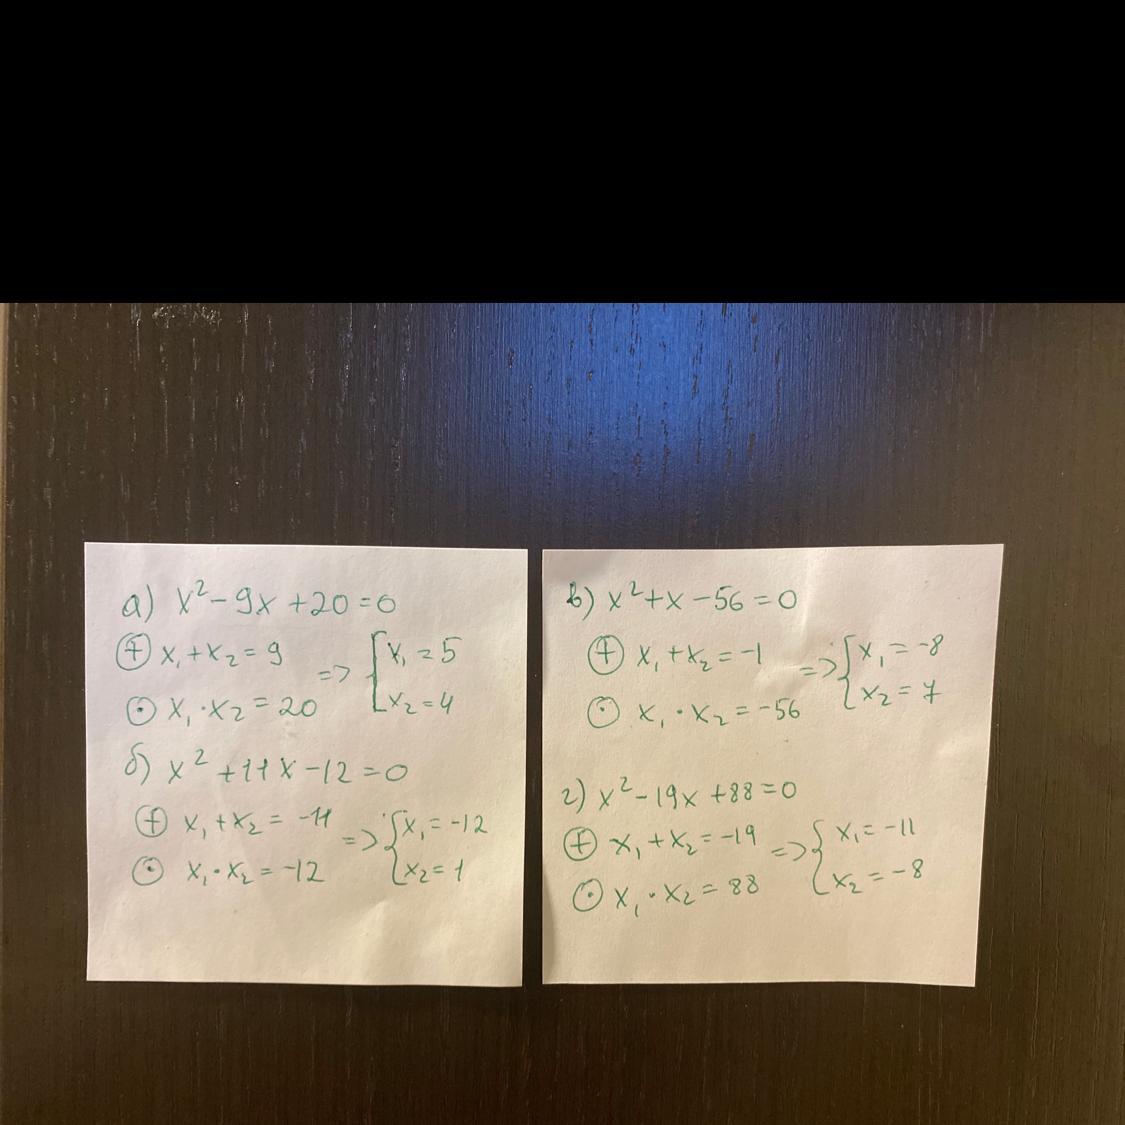 а) x²-9x+20=0
⊕ x₁+x₂=9 => [x₁=5
⊙ x₁·x₂=20 [x₂=4
б) x²+11x-12=0
⊕ x₁+x₂=-11 => {x₁=-12
⊙ x₁·x₂=-12 {x₂=1
в) x²+x-56=0
⊕ x₁+x₂=-1 => {x₁=-8
⊙ x₁·x₂=-56 {x₂=7
г) x²-19x+88=0
⊕ x₁+x₂=-19 => {x₁=-11
⊙ x₁·x₂=88 {x₂=-8